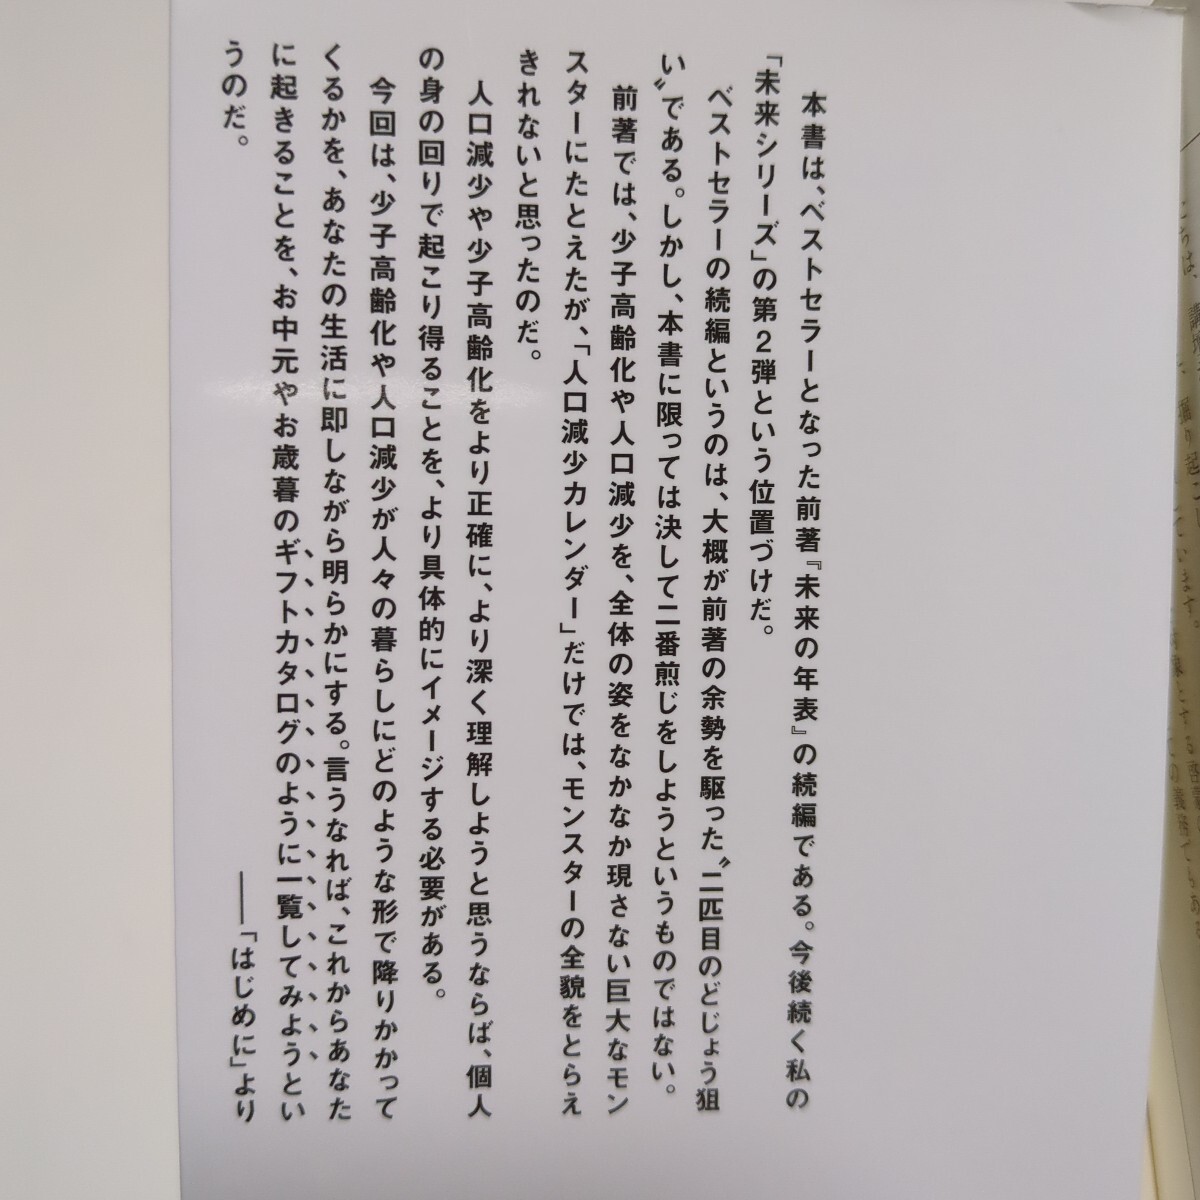 本書は、ベストセラーとなった前著『未来の年表』の続編である。今後続く私の
「未来シリーズ」の第2弾という位置づけだ。
ベストセラーの続編というのは、大概が前著の余勢を駆った〝二匹目のどじょう狙
い〟である。しかし、本書に限っては決して二番煎じをしようというものではない。
前著では、少子高齢化や人口減少を、全体の姿をなかなか現さない巨大なモン
スターにたとえたが、「人口減少カレンダー」だけでは、モンスターの全貌をとらえ
きれないと思ったのだ。
人口減少や少子高齢化をより正確に、より深く理解しようと思うならば、個人
の身の回りで起こり得ることを、より具体的にイメージする必要がある。
今回は、少子高齢化や人口減少が人々の暮らしにどのような形で降りかかって
くるかを、あなたの生活に即しながら明らかにする。言うなれば、これからあなた
に起きることを、お中元やお歳暮のギフトカタログのように一覧してみようとい
うのだ。
――「はじめに」より